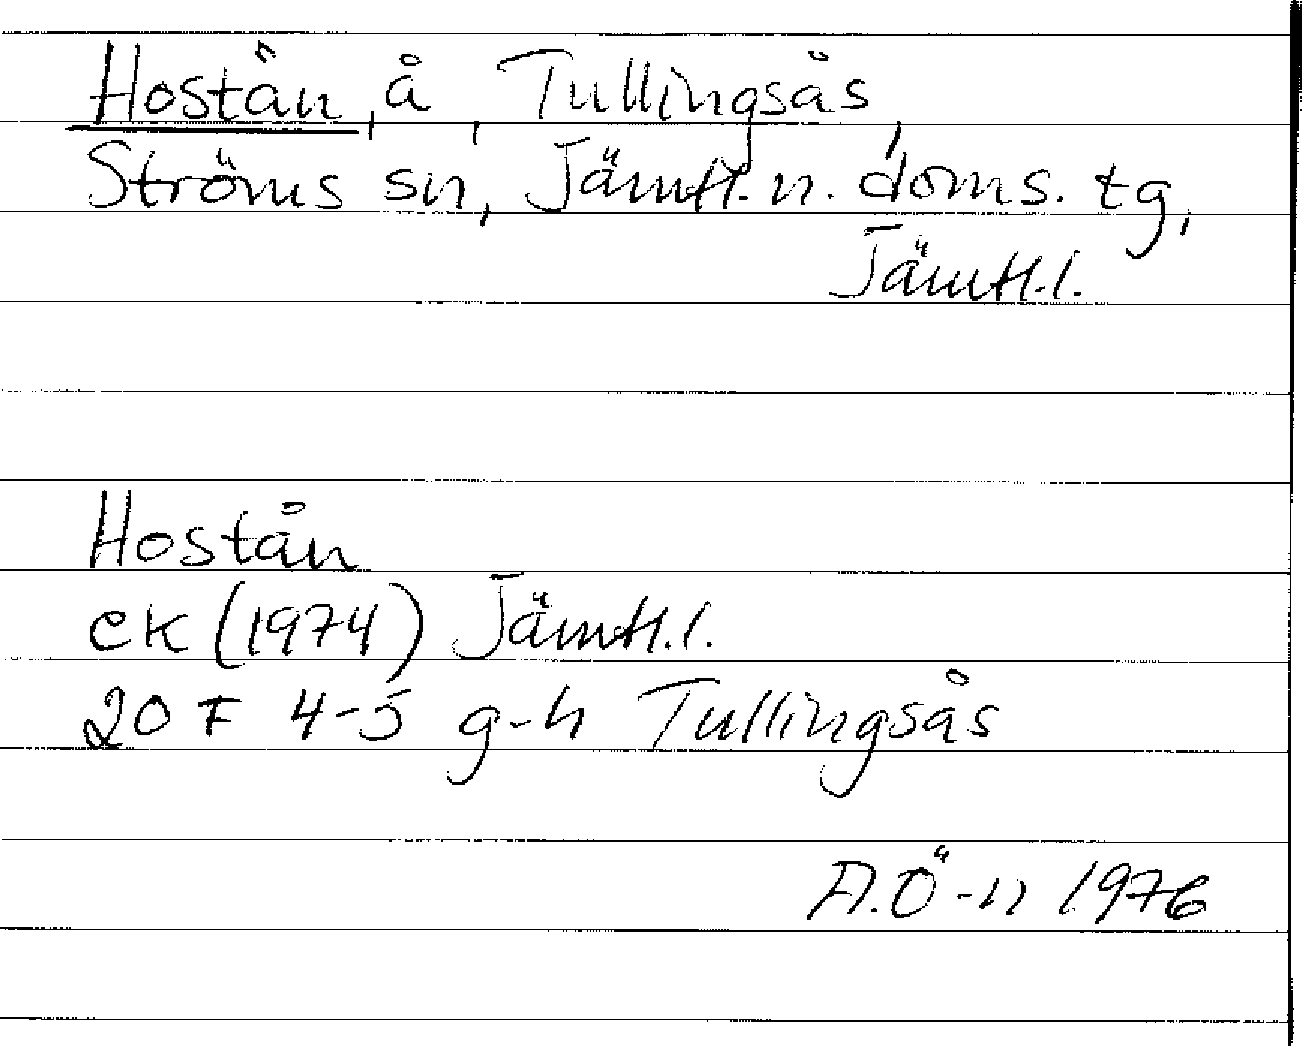 Hostån, å, Tullingsås,
Ströms sn, Jämtl. n. doms. tg,
Jämtl. l.
Hostån
ek (1974) Jämtl. l.
20 F 4-5 g-h Tullingsås
A.Ö-n 1976